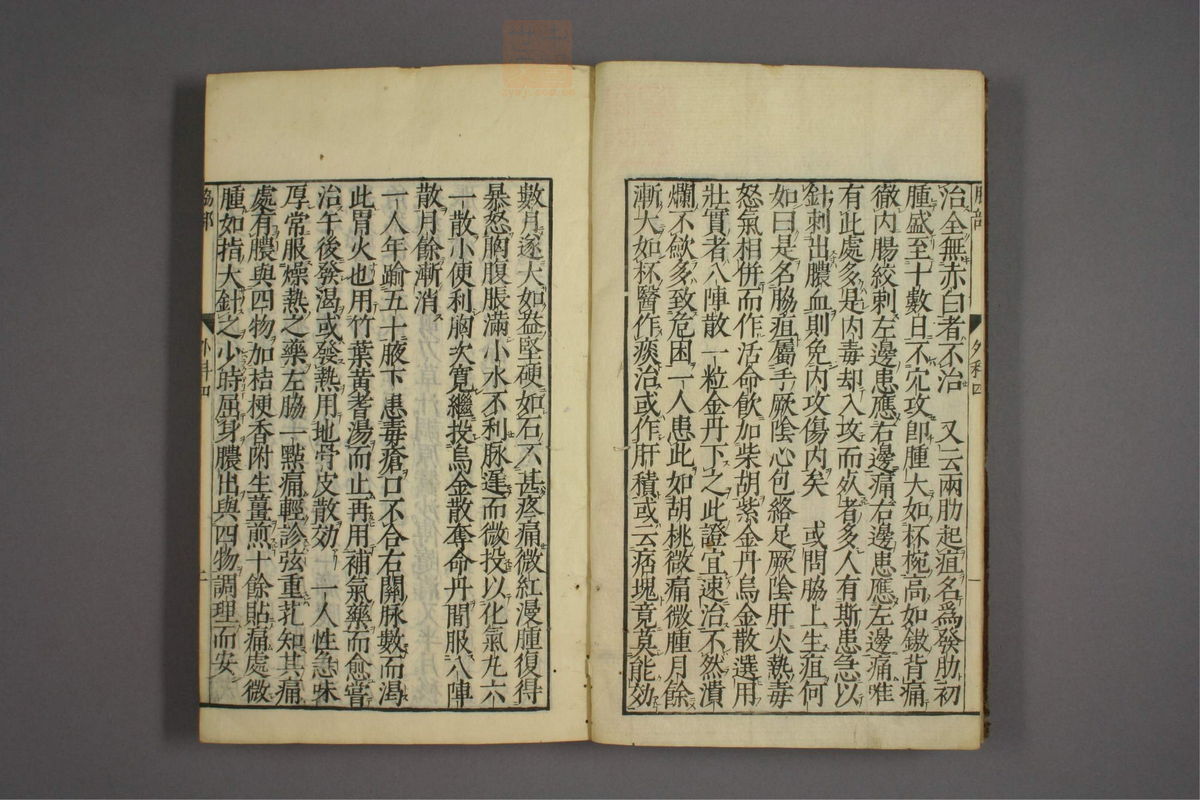 治全無赤白者不治　又云兩肋起疽名爲發肋初
腫盛至十數日不宂攻卽腫大如杯椀高如鏃背痛
徹内腸絞刺左邊患應右邊痛右邊患應左邊痛唯
有此處多是内毒却入攻而㱙者多人有斯患急以
針刺出膿血則免内攻傷内矣　或問脇上生疽何
如曰是名脇疽屬手厥陰心包絡足厥陰肝火熱毒
怒氣相併而作活命飮加柴胡紫金丹烏金散選用
壯實者八陣散一粒金丹下之此證宜速治不然潰
爛不歛多致危困一人患此如胡桃微痛微腫月餘
漸大如杯醫作痰治或作肝積或云痞塊竟莫能効
數月遂大如盆堅硬如石不甚疼痛微紅漫腫復得
暴怒胸腹脹滿小水不利脉遲而微投以化氣丸六
一散小便利胸次寬繼投烏金散奪命丹間服八陣
散月餘漸消
一人年踰五十腋下患毒瘡口不合右關脉數而渴
此胃火也用竹葉黄耆湯而止再用補氣藥而愈嘗
治午後發渴或發熱用地骨皮散効　一人性急味
厚常服燥熱之藥左脇一點痛輕診弦重芤知其痛
處有膿與四物加桔梗香附生薑煎十餘貼痛處微
腫如指大針之少時屈身膿出與四物調理而安
脇部
外科四
一
脇部
外科四
二